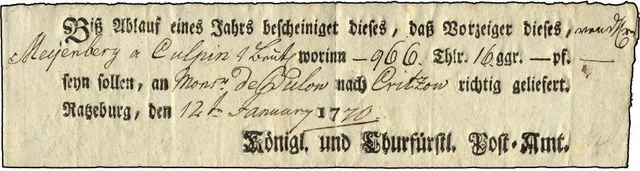 Biß Ablauf eines Jahrs bescheiniget dieses, daß Vorzeiger dieses,
Meijenberg a Culpin 1 Beut. worinn — 966. Thlr. 16 ggr. — pf. —
seyn sollen, an Monsr. De Bulow nach Critzow richtig geliefert.
Ratzeburg, den 12t. January 1770.
Königl. und Churfürstl. Post-Amt.